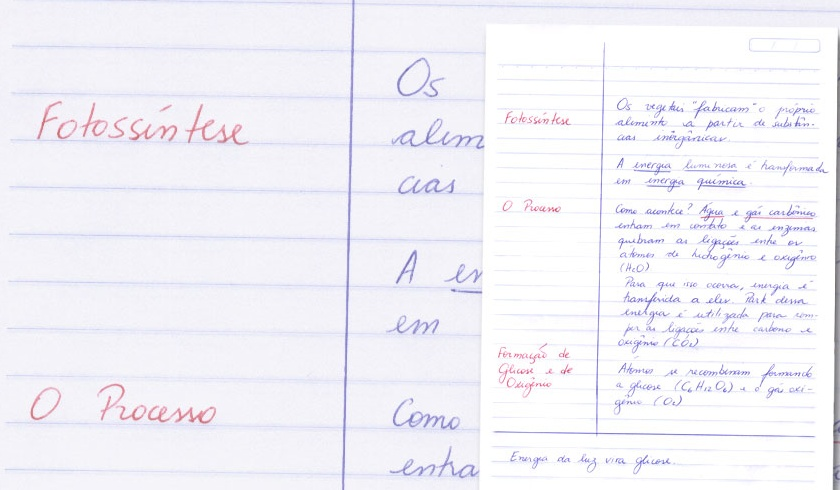 Fotossíntese
O Processo
Os
alim
cias
A en
em
Como
entra
Fotossíntese
O Processo
Formação de
Glicose e de
Oxigênio
Os vegetais "fabricam" o próprio
alimento a partir de substân-
cias inorgânicas.
A energia luminosa é transformada
em energia química.
Como acontece? Água e gás carbônico
entram em contato e as enzimas
quebram as ligações entre os
átomos de hidrogênio e oxigênio
(H₂O)
Para que isso ocorra, energia é
transferida a eles. Parte dessa
energia é utilizada para rom-
per as ligações entre carbono e
oxigênio (CO₂)
Átomos se recombinam formando
a glicose (C₆H₁₂O₆) e o gás oxi-
gênio (O₂)
Energia da luz vira glicose.